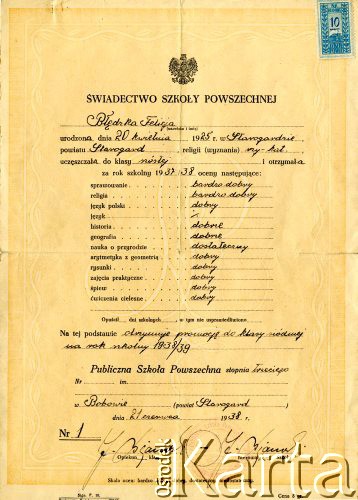 10
ŚWIADECTWO SZKOŁY POWSZECHNEJ
Błędzka Felicja
(nazwisko i imię)
urodzona dnia 20 kwietnia 1925 r. w Starogardzie
powiatu Starogard religii (wyznania) rz-kat.
uczęszczała do klasy szóstej i otrzymała
za rok szkolny 1937/38 oceny następujące:
sprawowanie bardzo dobry
religia bardzo dobry
język polski dobry
język
historia dobre
geografia dobre
nauka o przyrodzie dostateczny
arytmetyka z geometrią dobry
rysunki dobry
zajęcia praktyczne dobry
śpiew dobry
ćwiczenia cielesne dobry
Opuścił dni szkolnych, w tym nie usprawiedliwiono
Na tej podstawie otrzymuje promocję do klasy siódmej
na rok szkolny 1938/39
Publiczna Szkoła Powszechna stopnia trzeciego
Nr im.
w Bobowie (powiat Starogard)
dnia 21 czerwca 1938 r.
Nr 1
Opiekun klasy
Ośrodek
Karta